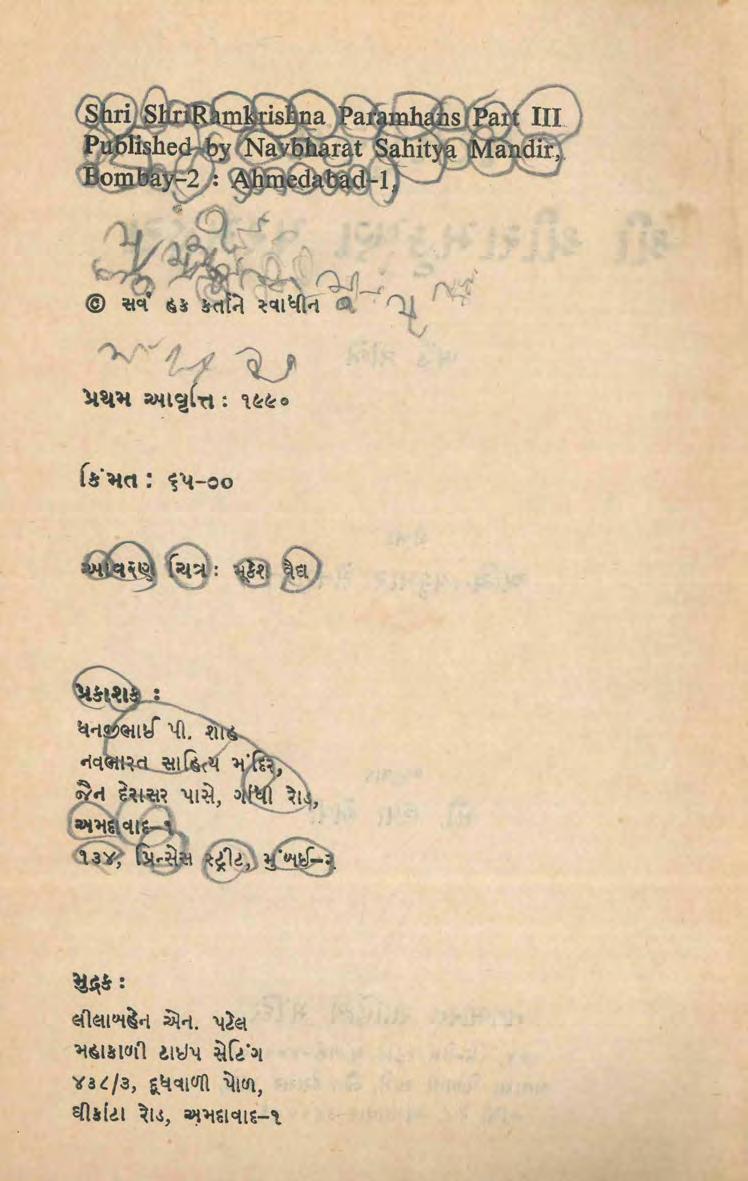 Shri ShriRamkrishna Paramhans Part III
Published by Navbharat Sahitya Mandir,
Bombay-2 : Ahmedabad-1,
© સર્વ હક કર્તાને સ્વાધીન
પ્રથમ આવૃત્તિ : ૧૯૯૦
કિંમત : ૬૫-૦૦
આવરણ ચિત્ર : મૂકેશ વૈદ્ય
પ્રકાશક :
ધનજીભાઈ પી. શાહ
નવભારત સાહિત્ય મંદિર,
જૈન દેરાસર પાસે, ગાંધી રોડ,
અમદાવાદ-૧
૧૩૪, પ્રિન્સેસ સ્ટ્રીટ, મુંબઈ-૨
મુદ્રક :
લીલાબહેન એન. પટેલ
મહાકાળી ટાઇપ સેટિંગ
૪૩૮/૩, દૂધવાળી પોળ,
ઘીકાંટા રોડ, અમદાવાદ-૧